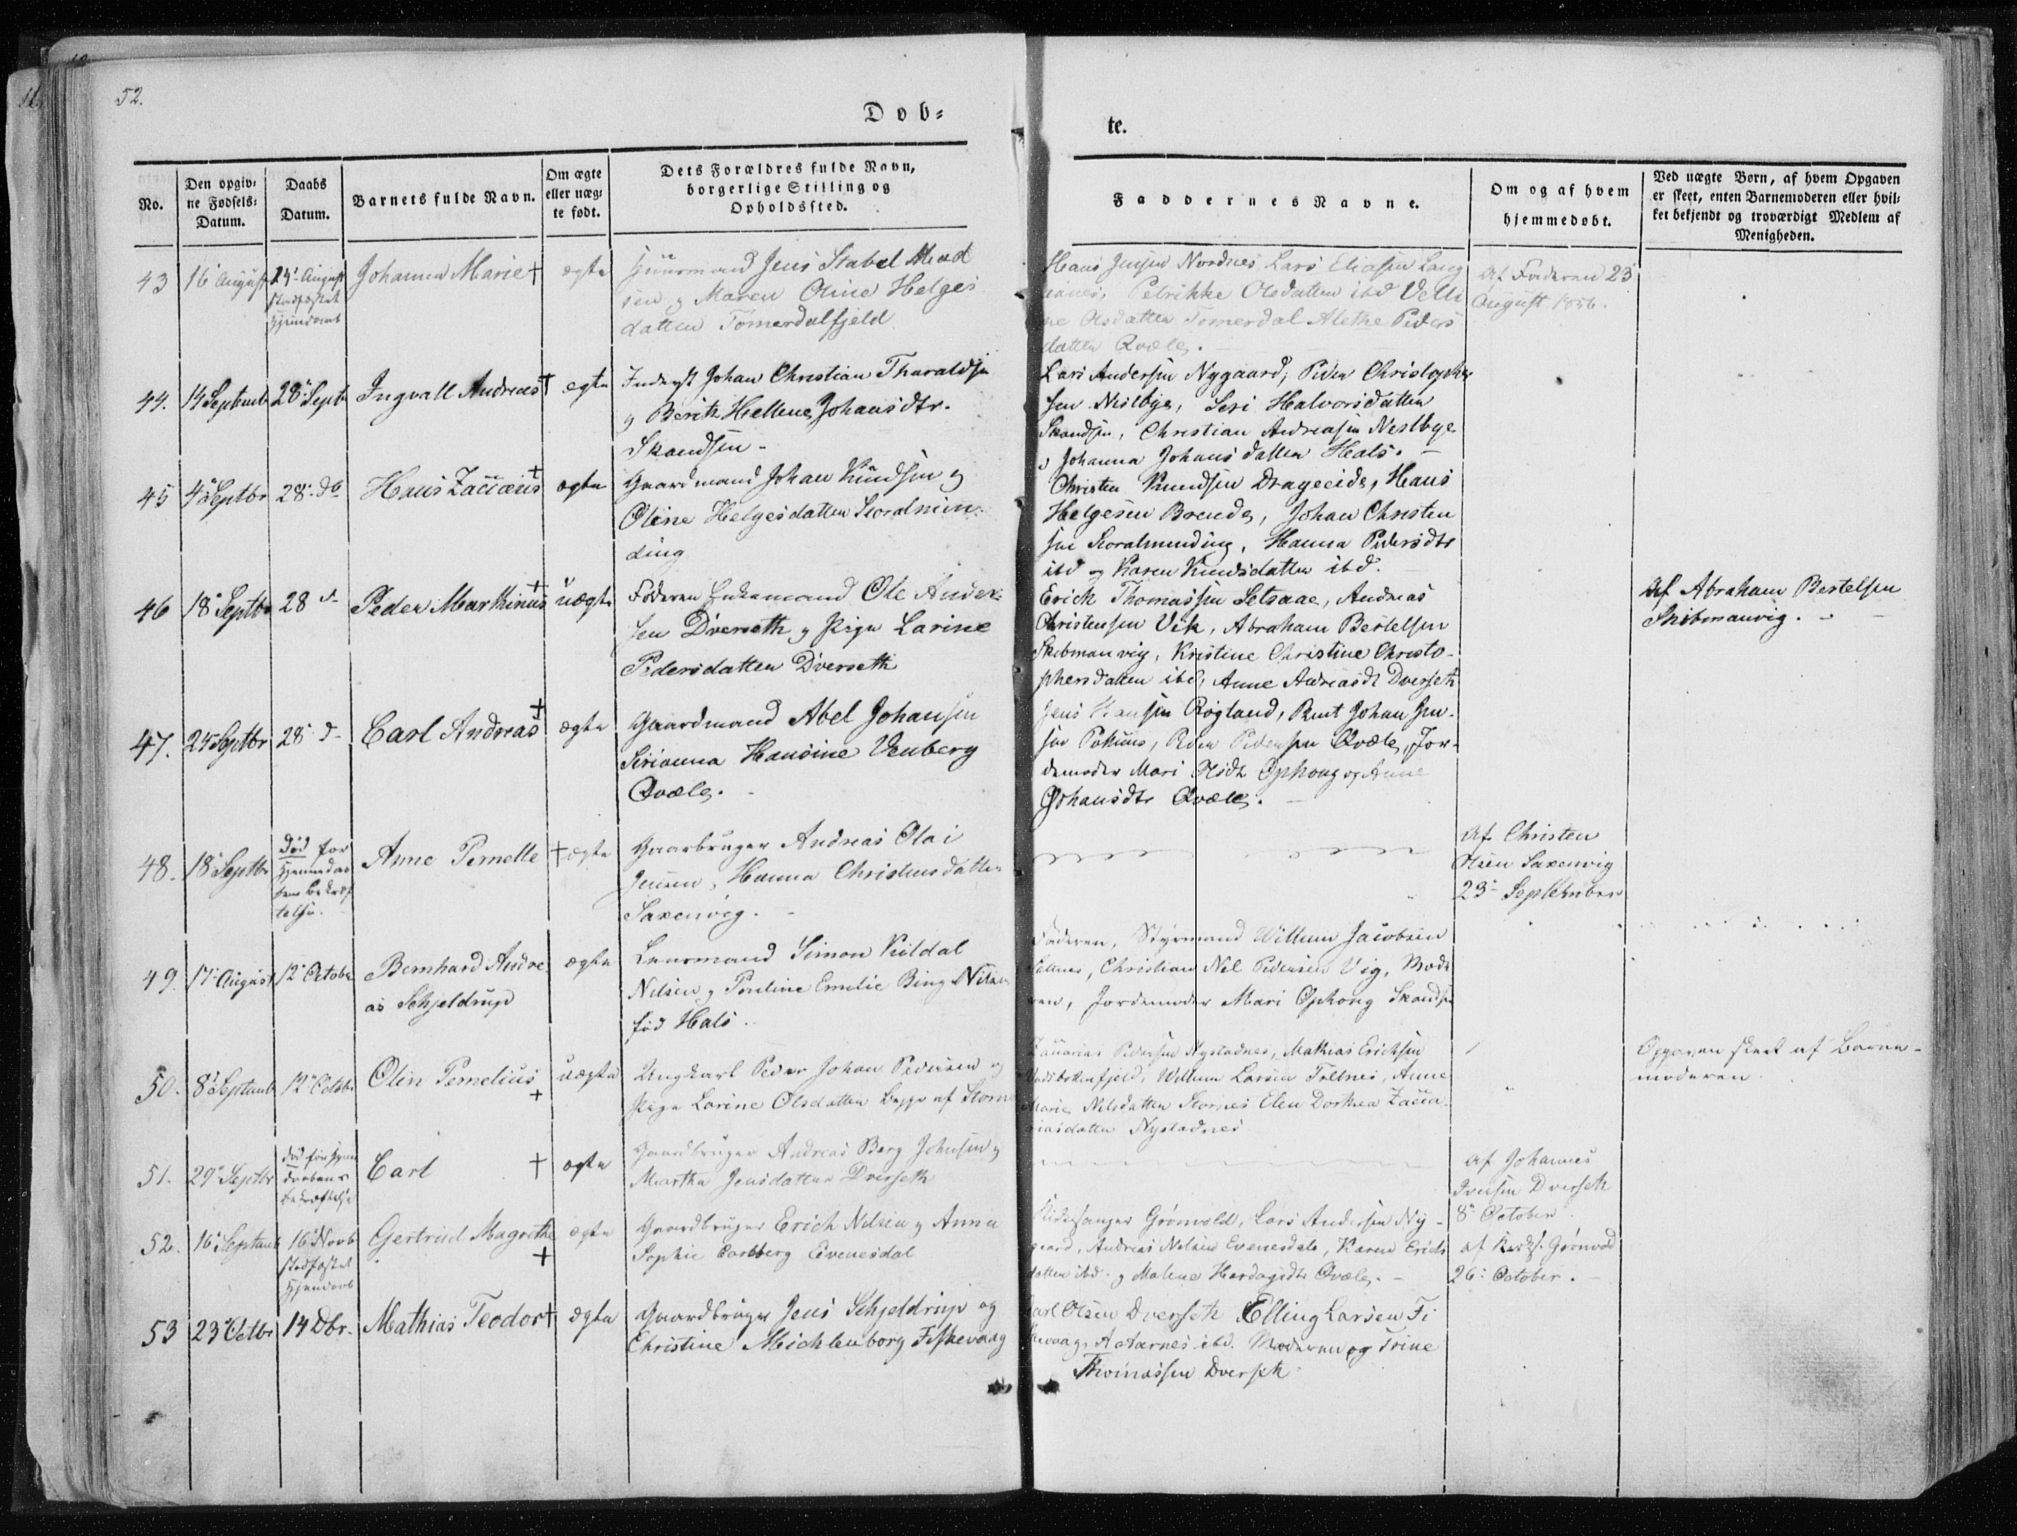 52.
Døb=
te.
No.
Den opgiv=
ne Fødsels=
Datum.
Daabs
Datum.
Barnets fulde Navn.
Om ægte
eller uæg=
te født.
Dets Forældres fulde Navn,
borgerlige Stilling og
Opholdssted.
Faddernes Navne.
Om og af hvem
hjemmedøbt.
Ved uægte Børn, af hvem Opgaven
er skeet, enten Barnemoderen eller hvil=
ket bekjendt og troværdigt Medlem af
Menigheden.
43
16 August
24 August
stadfæstet
Hjemdaab
Johanna Marie +
ægte
Huusmand Jens Stabel Mad
sen og Maren Oline Helges
datten Tomerdalfjeld
Hans Jensen Nordnes Lars Eliasen Lang
Petrikke Olsdatten ibd
ne Olsdatten Tomerdal Alethe Peders
datten Qvæle.
Af Faderen 23
August 1856.
44.
14 Septemb
28 Septb
Ingvall Andreas +
ægte
Inderst Johan Christian Tharaldsen
og Berith Hellene Johansdtr.
Skandsen -
Lars Andersen Nygaard, Peder Christopher
sen Neslbye, Seri Halvorsdatten
Skandsen, Christian Andreasen Neslbye
Johanna Johansdatten Hals.
45
4 Septbr
28 do
Hans Zacæus +
ægte
Gaardmand Johan Knudsen og
Oline Helgesdatten Storalmin=
ding
Christen Knudsen Drageeide, Hans
Helgesen Brende, Johan Christen
sen Storalminding, Hanna Pedersdtr
ibd og Karen Knudsdatten ibd.
46
18 Septbr
28 d
Peder Marthinus +
uægte
Faderen Enkemand Ole Ander
sen Dverseth og Pige Larine
Pedersdatten Dverseth
Erick Thomassen Setsaae, Andreas
Christensen Vik, Abraham Bertelsen
Skibmanvig, Kristine Christine Christo-
phersdatten ibd, Anne Andreasdt Dverseth
Af Abraham Bertelsen
Skibmanvig.
47.
24 Septbr
28 d
Carl Andreas +
ægte
Gaardmand Abel Johansen
Sirianna Hansine Venberg
Qvæle.
Jens Hansen Røgland, Bent Johan Jen-
sen Peder Pedersen Qvæle, Jor-
demoder Mari Olsdt Ophoug og Anne
Johansdtr Qvæle.
48.
18 Septbr
Død før
Hjemmedaa
bens bekræf
telse.
Anne Pernelle +
ægte
Gaarbruger Andreas Olai
Jensen, Hanna Christensdatten
Saxenvig.
Af Christen
Olsen Saxenvig
23 September
49.
17 August
12 Octobr
Bernhard Andre
as Schjeldrup
ægte
Lensmand Simon Kildal
Nilsen og Pauline Emelie Bing Nilsen
fød Hals.
Faderen, Styrmand Willum Jacobsen
Christian Nel Pedersen Vig, Mode
ren, Jordemoder Mari Ophoug Skandsen
50.
8 Septemb
12 Octobr
Olin Pernelius +
uægte
Ungkarl Peder Johan Pedersen og
Pige Larine Olsdatten begge af Storn
Zacarias Pedersen Nystadnes, Mathias Erichsen
Willum Larsen Toltnes, Anne
Marie Nilsdatten Stornes Elen Dorthea Zacca-
riasdatten Nystadnes
Opgaven skeet af Barne-
moderen.
51.
29 Septbr
død før Hjem
daabens
bekræftelse
Carl +
ægte
Gaardbruger Andreas Berg Johnsen og
Martha Jensdatten Dverseth
Af Johannes
Iversen Dverseth
8 October
52.
16 Septemb
16 Novb
stadfæstet
Hjemdaab
Gertrud Magrethe +
ægte
Gaardbruger Erich Nilsen og Anna
Sophie Carlberg Evenesdal
Kirkesanger Grønvold, Lars Andersen Ny-
gaard, Andreas Nelsen Evenesdale, Karen Erichs
datten ibd. og Malene Qvæle.
af Kirks. Grønvold
26 October.
53
23 Octbr
14 Dbr.
Mathias Teodor +
ægte
Gaardbruger Jens Schjeldrup og
Christine Michlenborg Fiskevaag
Carl Olsen Dverseth Elling Larsen Fi
skevaag, A. Aarnes ibd. Moderen og Trine
Thomassen Dverseth